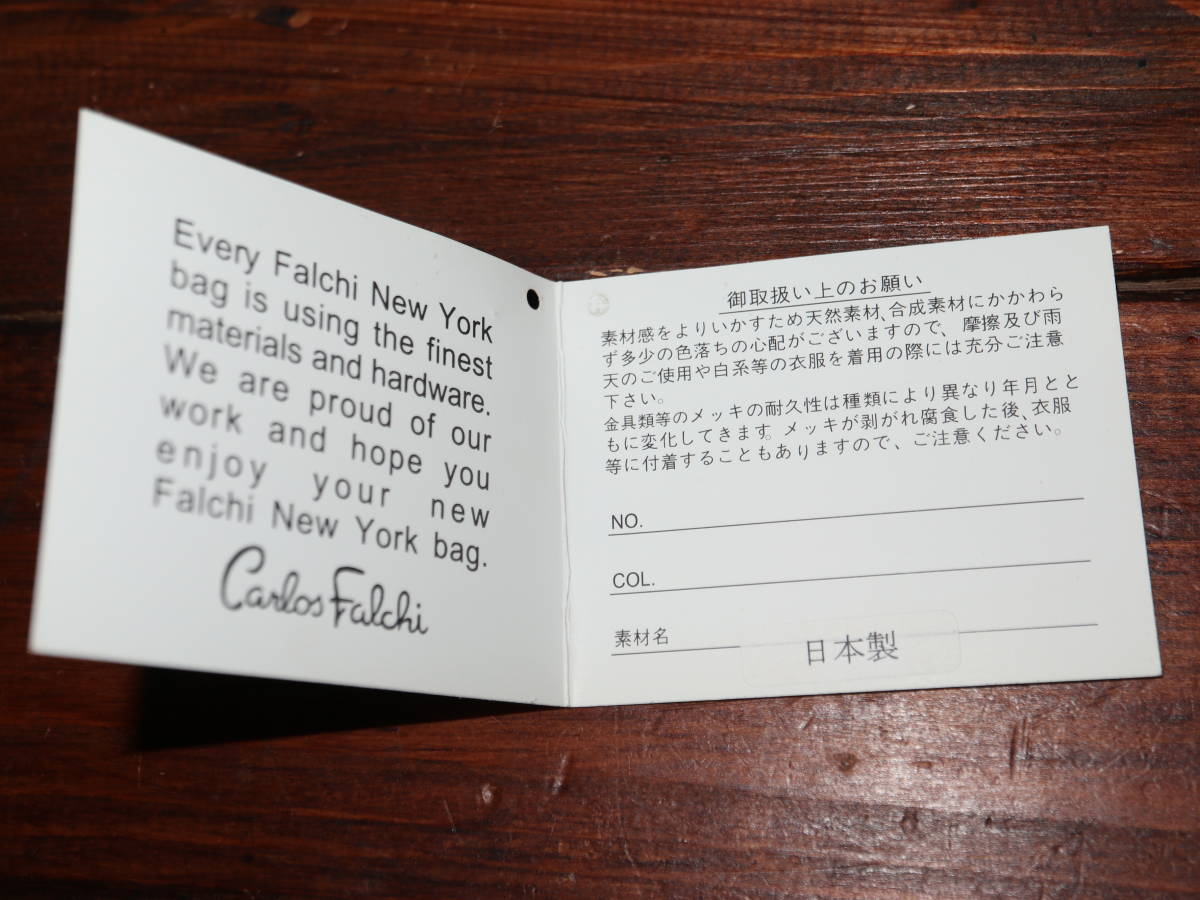 Every Falchi New York
bag is using the finest
materials and hardware.
We are proud of our
work and hope you
enjoy your new
Falchi New York bag.
Carlos Falchi
御取扱い上のお願い
素材感をよりいかすため天然素材、合成素材にかかわら
ず多少の色落ちの心配がございますので、摩擦及び雨
天のご使用や白系等の衣服を着用の際には充分ご注意
下さい。
金具類等のメッキの耐久性は種類により異なり年月とと
もに変化してきます。メッキが剥がれ腐食した後、衣服
等に付着することもありますので、ご注意ください。
NO.
COL.
素材名
日本製